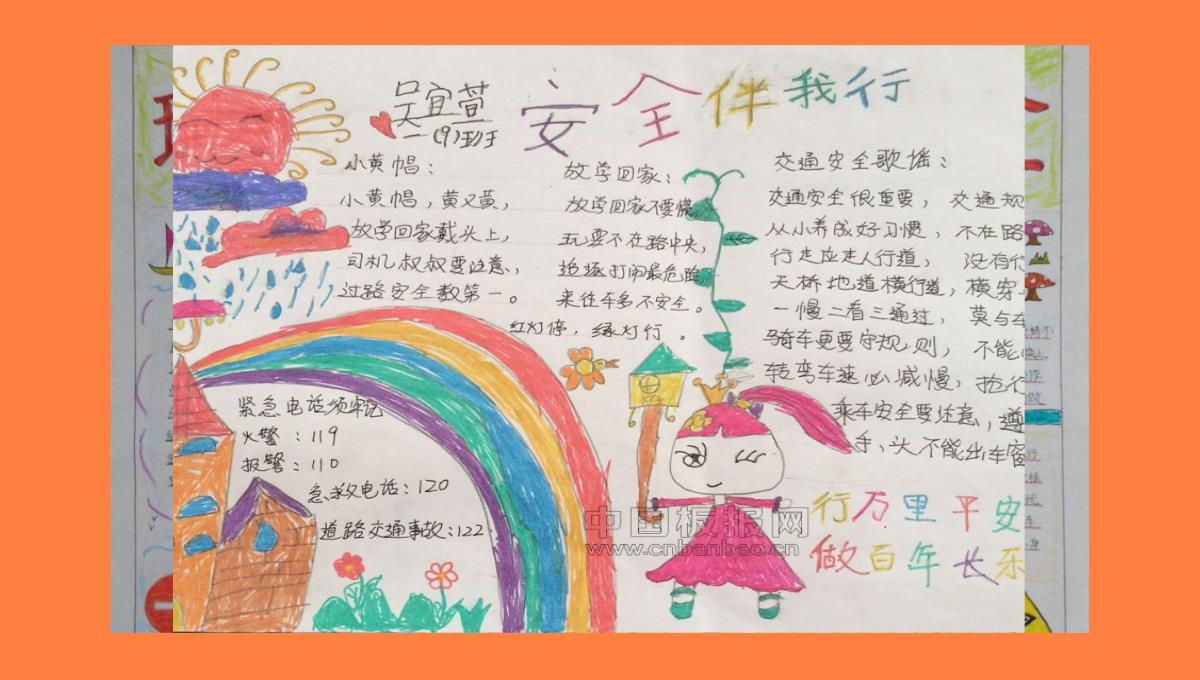 吴宜萱
二(9)班
安全伴我行
小黄帽：
小黄帽，黄又黄，
放学回家戴头上，
司机叔叔要注意，
过路安全数第一。
放学回家：
放学回家不要慌，
玩耍不在路中央，
追逐打闹最危险，
来往车多不安全。
红灯停，绿灯行。
交通安全歌谣：
交通安全很重要，交通规
从小养成好习惯，不在路
行走应走人行道，没有行
天桥地道横行道，横穿
一慢二看三通过，莫与车
骑车更要守规则，不能
转弯车速必减慢，抢行
乘车安全要注意，遵
手、头不能出车窗
紧急电话须牢记
火警：119
报警：110
急救电话：120
道路交通事故：122
中国板报网
www.cnbanbao.cn
行万里平安
做百年长乐